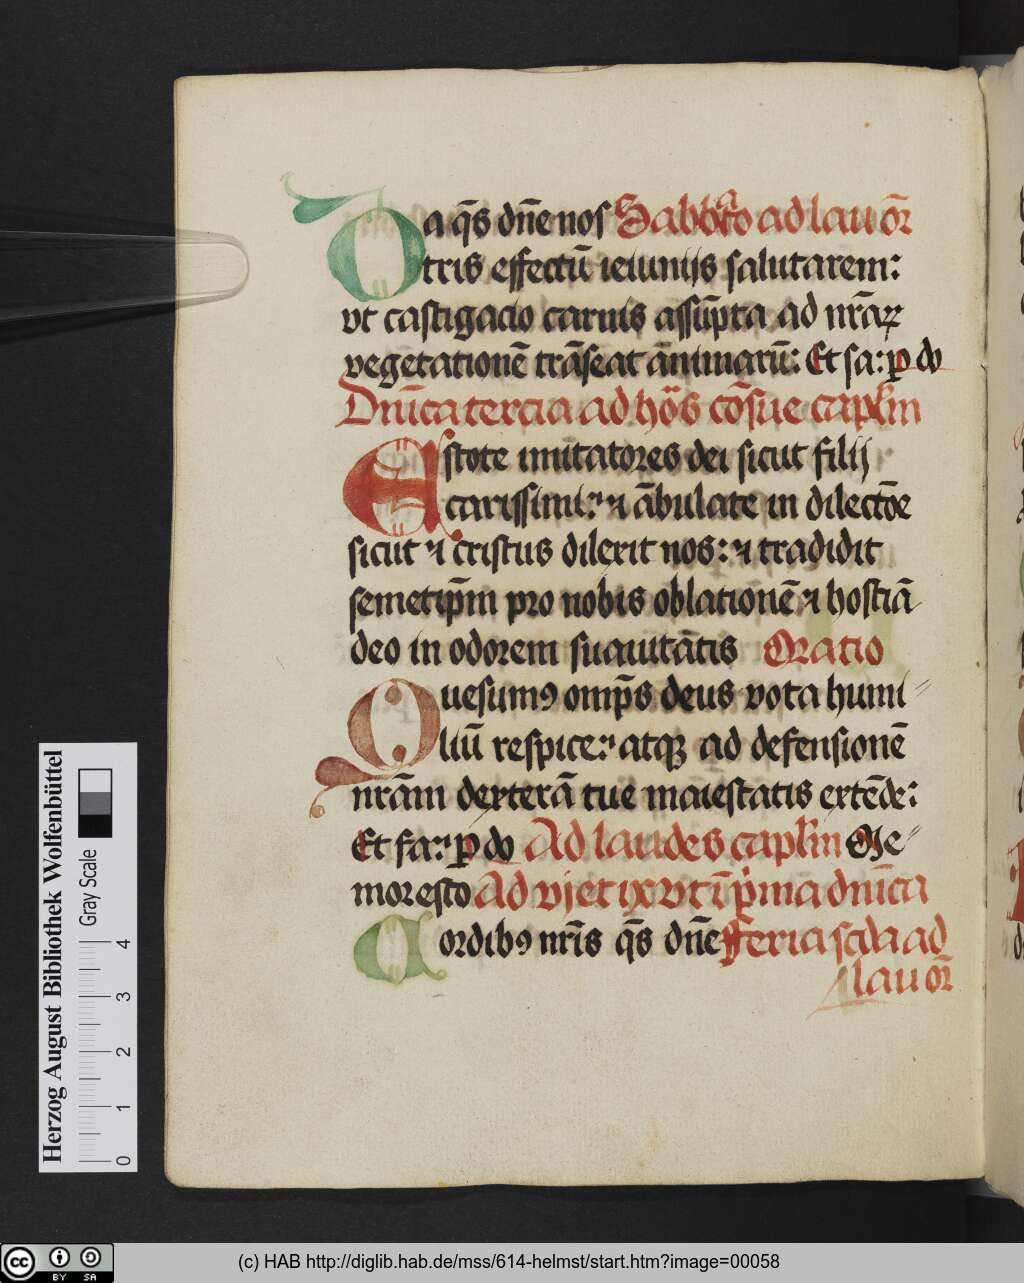 Da q̄s dn̄e nos Sabbato ad lau or̄
tris effectū ieiunijs salutarem:
vt castigacio carnis assūpta ad nr̄aꝝ
vegetationē trāseat animarū: Et fa: ꝑ do
Dn̄ica tercia ad hōs cōsue capl̄m
Estote imitatores dei sicut filij
carissimi: ⁊ ābulate in dilectōe
sicut ⁊ cristus dilexit nos: ⁊ tradidit
semetip̄m pro nobis oblationē ⁊ hostiā
deo in odorem suauitatis Oratio
Quesumꝰ omp̄s deus vota humi
liū respice: atqꝫ ad defensionē
nr̄am dexterā tue maiestatis extēde:
Et fa: ꝑ do Ad laudes capl̄m Me
mor esto Ad vj et ix vt ī p̄ma dn̄ica
Cordibꝰ nr̄is q̄s dn̄e Feria scd̄a ad
lau or̄
Herzog August Bibliothek Wolfenbüttel
Gray Scale
0 1 2 3 4
cc BY SA
(c) HAB http://diglib.hab.de/mss/614-helmst/start.htm?image=00058